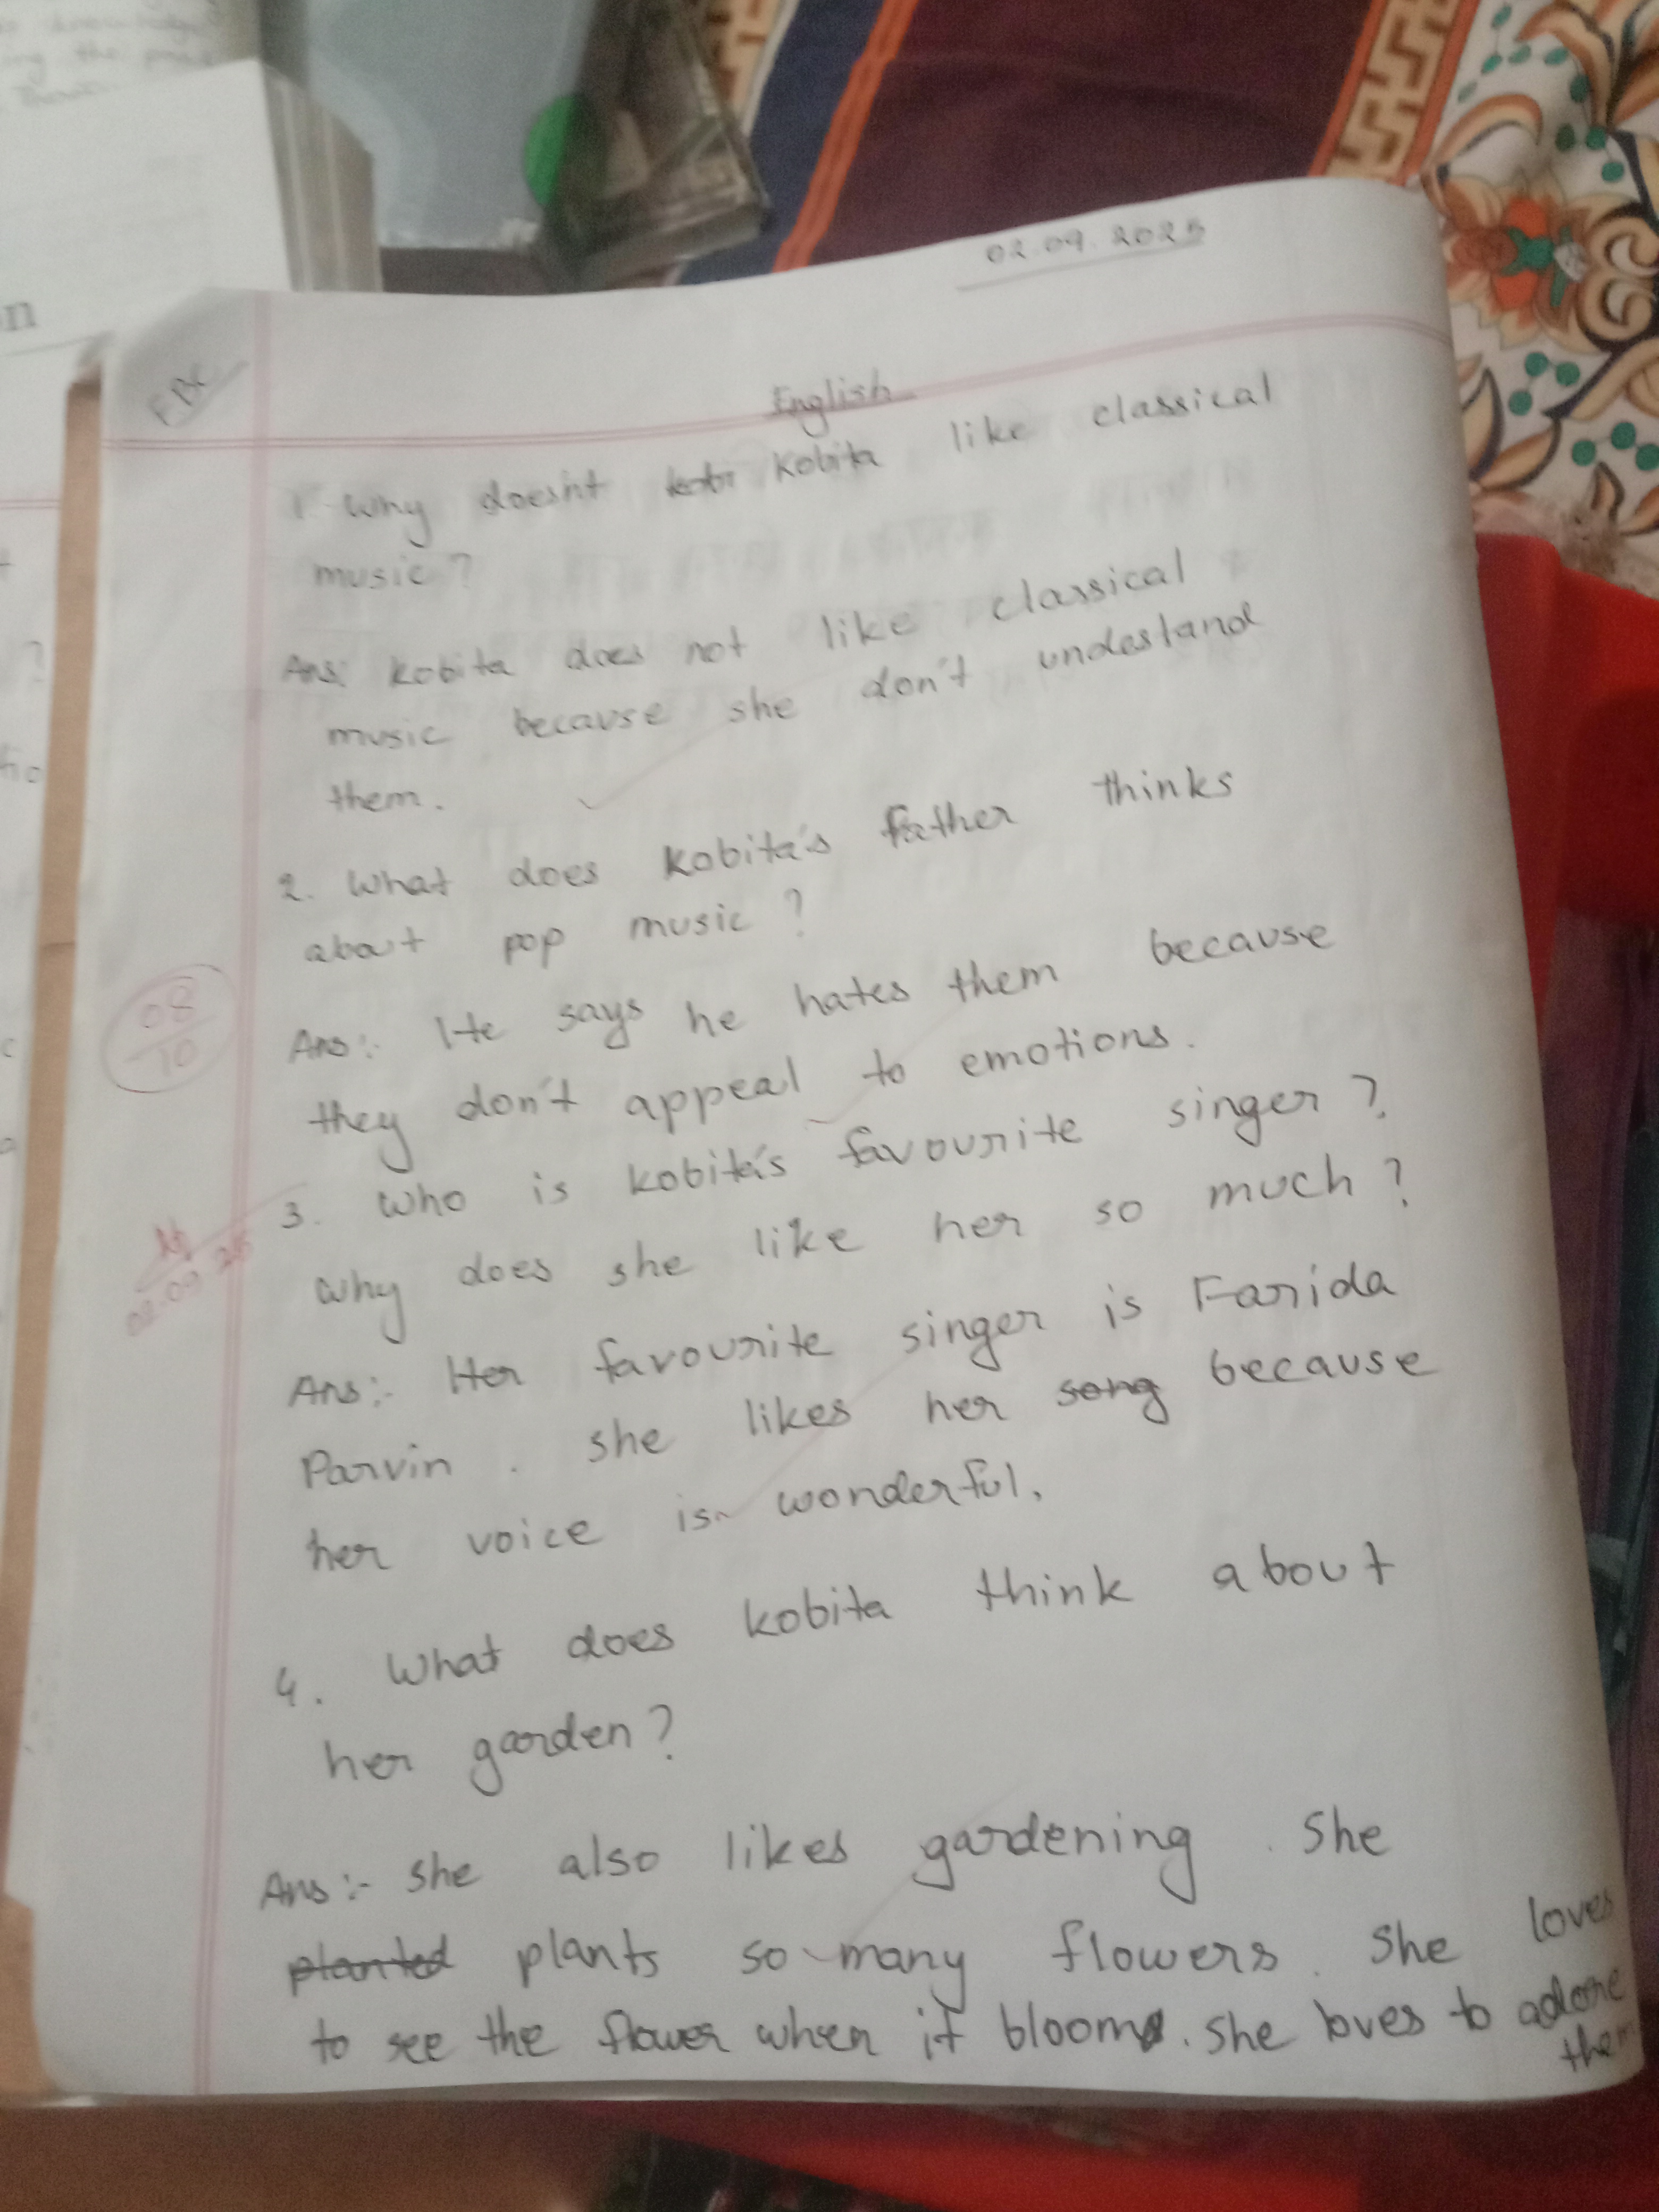 02.09.2025
English
1. Why doesn't Kobita like classical
music?
Ans: Kobita does not like classical
music because she don't undestand
them.
2. What does Kobita's father thinks
about pop music?
Ans:- He says he hates them because
they don't appeal to emotions.
08
10
3. Who is kobita's favourite singer?
why does she like her so much?
02.09.25
Ans:- Her favourite singer is Farida
Parvin. she likes her song because
her voice is wonderful.
4. What does kobita think about
her garden?
Ans:- she also likes gardening. She
planted plants so many flowers. She loves
to see the flower when it blooms. She loves to adore
them